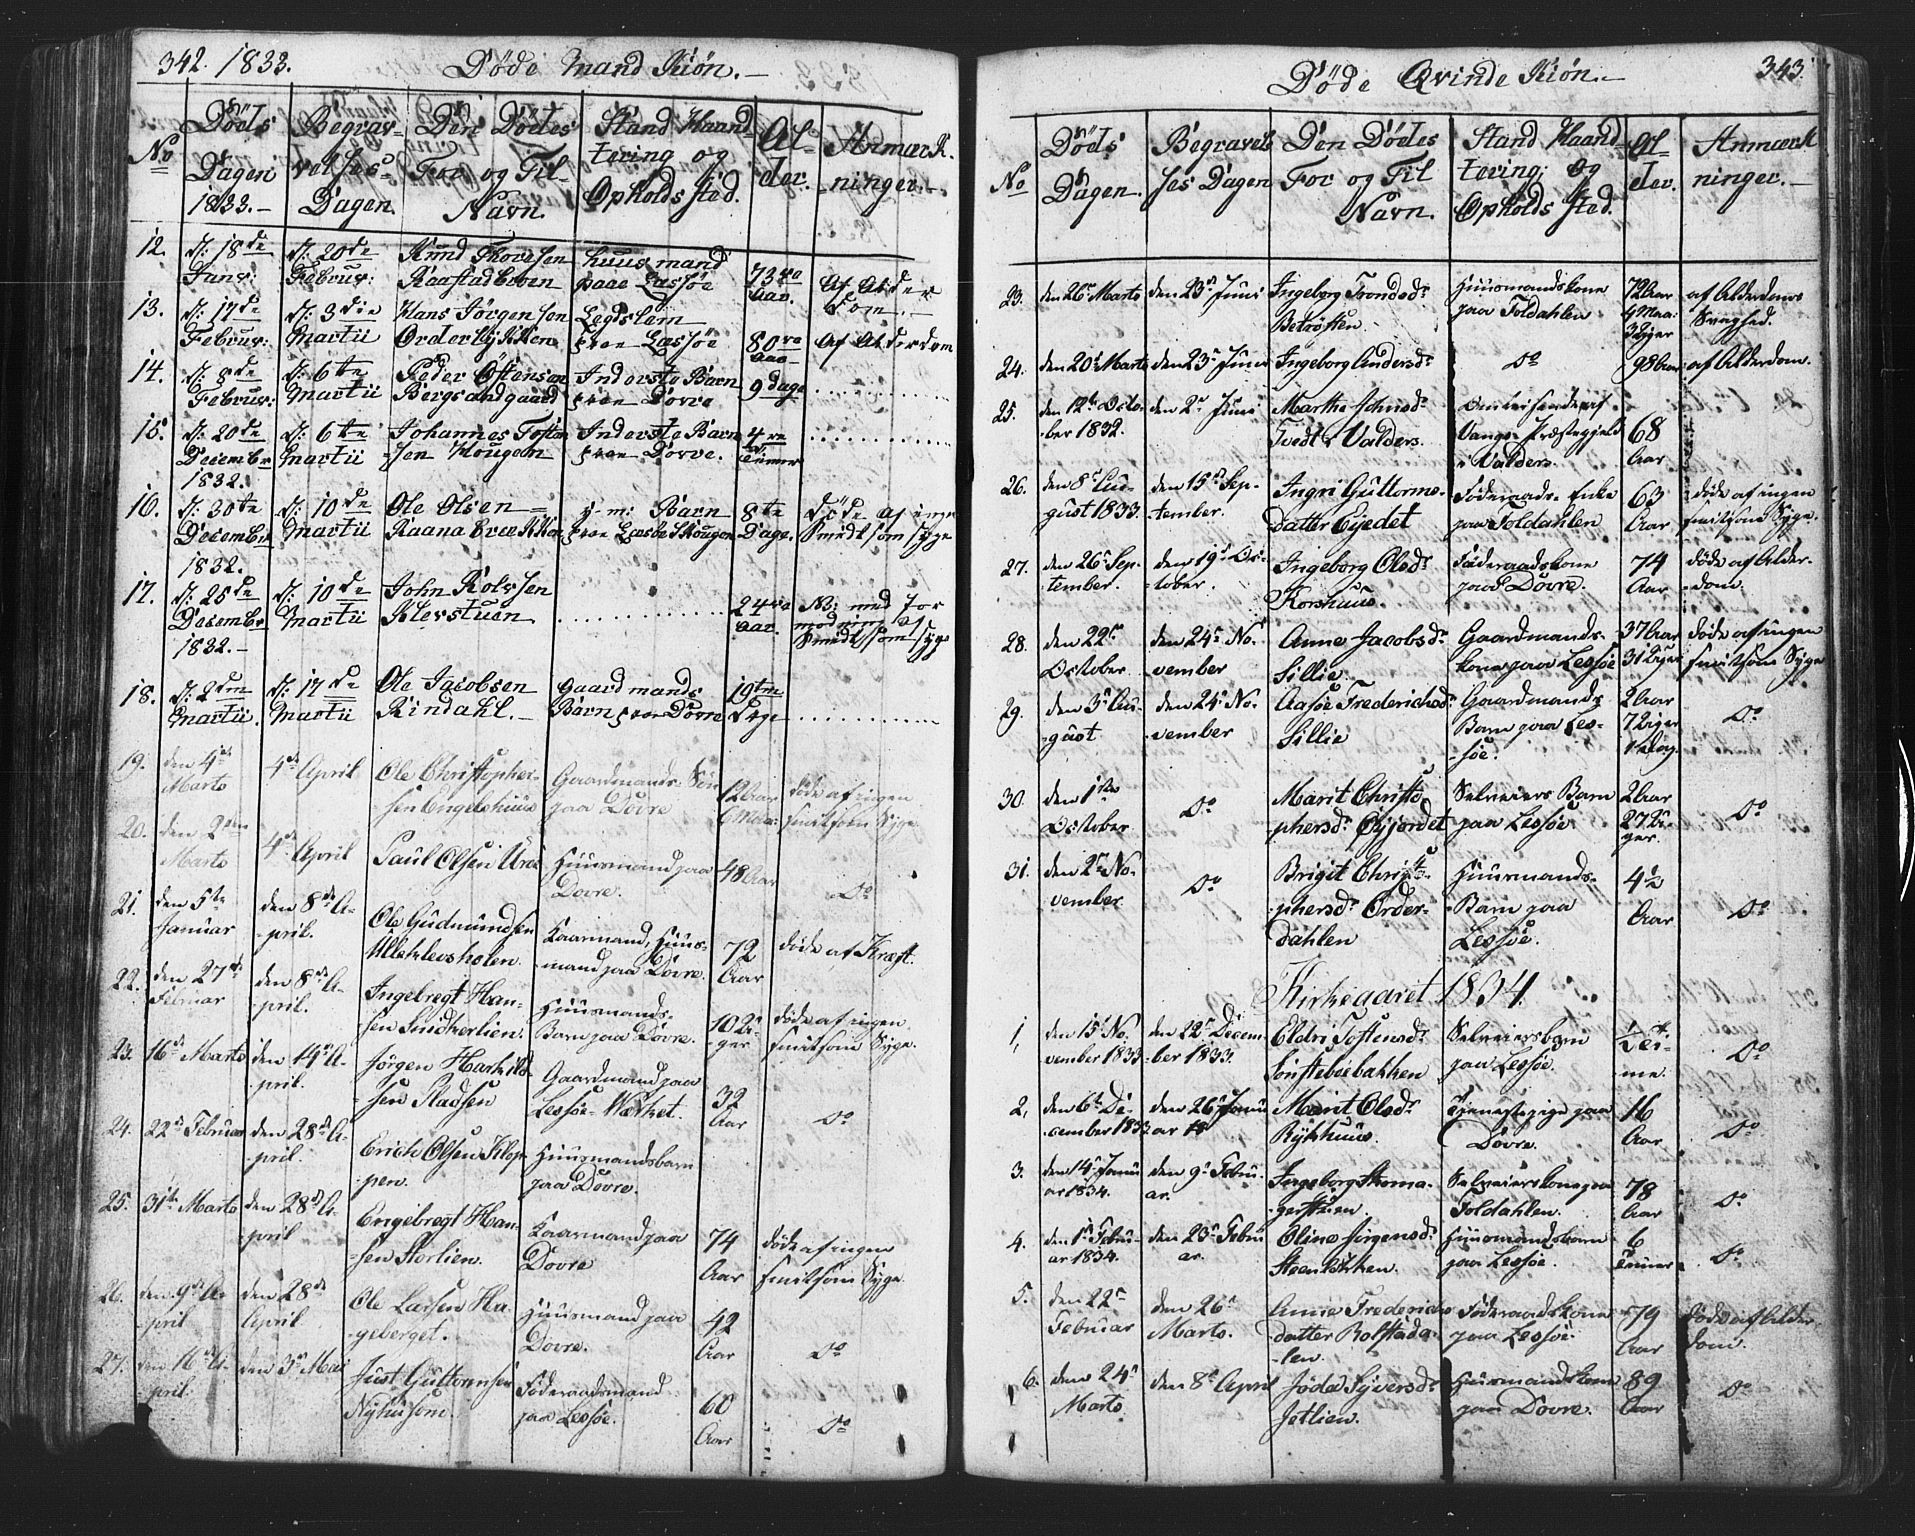 342. 1833.
Døde Mand Kiøn.
No
Døds Dagen 1833.
Begravelses Dagen
Den Dødes For og Til Navn.
Stand Haandtering og Opholdssted.
Alder.
Anmærkninger.
12. d: 18de Janr: d: 20de Februr: Knud Thoresen Raastadbroen huusmand paae Lessøe 73 Aar. Af Alderdom
13. d: 17de Februr: d: 3die Martii Hans Jørgensen Legdslem fra Lessøe 80 Aar Af Alderdom
14. d: 8de Februr: d: 6te Martii Peder Østensen Inderste Barn fra Dovre 9 Dage
15. d: 20de December 1832. d: 6te Martii Johannes Tosten-sen Hougen Inderste Barn fra Dovre. 4re Timer
16. d: 30te December 1832. d: 10de Martii Ole Olsen Barn 8te Dage. døde af ingen Smidtsom syge
17. d: 25de December 1832. d: 10de Martii John Rolvsen 24 Aar. Smidtsom syge
18. d: 2den Martii. d: 17de Martii Ole Jacobsen Rindahl. Gaardmands Barn fra Dovre
19. den 4de Marts 4de April Ole Christophersen Engelshuus Gaardmands Søn paa Dovre 12 Aar 6 Maa: døde af ingen smitsom Syge
20. den 2den Marts 4de April Paul Olsen Huusmand paa Dovre. 48 Aar Do
21. den 5te Januar den 8de April. Ole Gudmundsen Kaarmand, Huusmand paa Dovre. 72 Aar døde af Kræft.
22. den 27de Februar den 8de April. Ingebregt Hansen Huusmands-Barn paa Dovre. 10 Uger døde af ingen smitsom Syge.
23. 16de Marts den 14de April. Jørgen Gaardmand paa Lessøe-Værket. 32 Aar Do
24. 22de Februar den 28de April. Erich Olsen Kloppen. Huusmandsbarn paa Dovre.
25. 31te Marts den 28de April Engebregt Hansen Storlien. Kaarmand paa Dovre 74 Aar døde af ingen smitsom Syge.
26. den 9de April den 28de April Ole Larsen Hageberget. Huusmand paa Dovre. 42 Aar Do
27. den 16de April. den 3de Mai Just Guttormsen Føderaadsmand paa Lessøe. 60 Aar Do
Døde Qvinde Kiøn.
343.
No
Døds Dagen.
Begravelses Dagen
Den Dødes For og Til Navn.
Stand Haandtering og Opholds sted.
Alder.
Anmærkninger.
23. den 26de Marts den 23de Juni Ingeborg Trondsdr Huusmandskone paa Foldahlen 72 Aar 4 Maa: 3 Uger af Alderdoms Svaghed.
24. den 20de Marts den 23de Juni Ingeborg Andersdr Do 98 Aar af Alderdom.
25. den 12te October 1832. den 2de Juni Marthe Johnsdr Tvedt i Valders. Omreisende af Vangs Præstegjeld i Valders. 68 Aar
26. den 8de August 1833. den 15de September. Ingri Guttormsdatter Eyedet Føderaads-Enke paa Foldahlen 63 Aar døde af ingen smitsom Syge.
27. den 26de September. den 19de October. Ingeborg Olsdr Korshuus. Føderaadskone paa Dovre. 74 Aar døde af Alderdom.
28. den 22de October den 24de November Anne Jacobsdr Sillie. Gaardmandskone paa Lessøe 37 Aar 31 Uger døde af ingen smitsom Syge
29. den 3de August den 24de November Frederichsdr Sillie Gaardmands Barn paa Lessøe. 2 Aar 7 Uger 1 dag. Do
30. den 1ste October Do Marit Christophersdr Øyjordet Selveiers Barn paa Lessøe 2 Aar 27 Uger. Do
31. den 2de November Do Brigit Christophersdr Orderdahlen Huusmands-Barn paa Lessøe. 4½ Aar Do
Kirkeaaret 1834.
1, den 15de November 1833 den 22de December 1833. Eldri Tostensdr Selveiersbarn paa Lessøe. ¼ Time. Do
2, den 6te December 1833 den 26de Januar Marit Olsdr Rykhuus. Tjenestepige paa Dovre. 16 Aar Do
3. den 14de Januar 1834. den 9de Februar. Ingeborg Selveierskone paa Foldahlen. 78 Aar Do
4. den 1ste Februar 1834. den 23de Februar. Oline Jørgensdr Steenløkken. Huusmandsbarn paa Lessøe. 6 Timer Do
5. den 22de Februar den 26de Marts. Anne Frederichsdatter Rolstadalen. Føderaadskone paa Lessøe. 79 Aar døde af Alderdom.
6. den 24de Marts den 8de April Jøda Syversdr Jetlien. Huusmandskone paa Dovre. 89 Aar Do